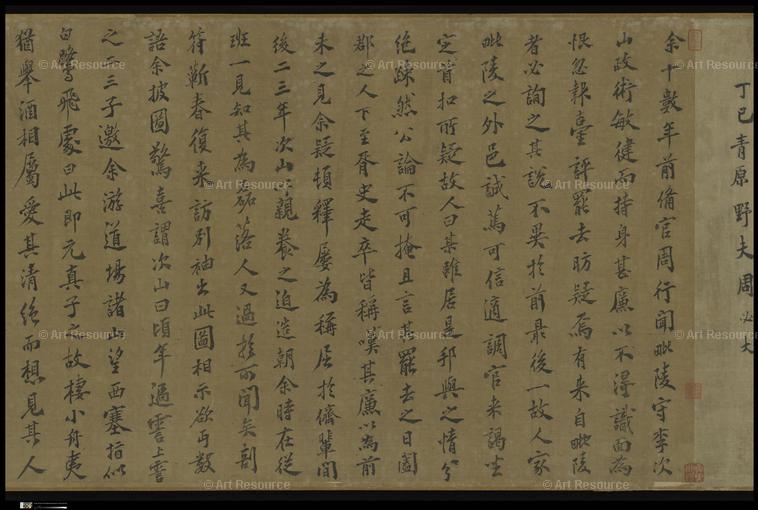 丁巳青原野夫周必大
余十數年前備官周行聞毗陵守李次
山政術敏健而持身甚廉以不得識面為
恨忽報臺評罷去昉疑焉有来自毗陵
者必詢之其説不異於前最後一故人家
毗陵之外邑誠篤可信適調官来謁坐
定首扣所疑故人曰某雖居是邦與之情分
絶踈然公論不可掩且言其罷去之日闔
郡之人下至胥史走卒皆稱嘆其廉以為前
未之見余疑頓釋屢為稱屈於儕輩間
後二三年次山以親養之迫造朝余時在従
班一見知其為磊落人又過於所聞矣剖
符蘄春復来訪别袖出此圖相示欲丐數
語余披圖驚喜謂次山曰頃年過霅上霅
之二三子邀余游道場諸山望西塞指似
白鷺飛處曰此即元真子之故棲小舟夷
猶舉酒相屬愛其清絶而想見其人
© Art Resource